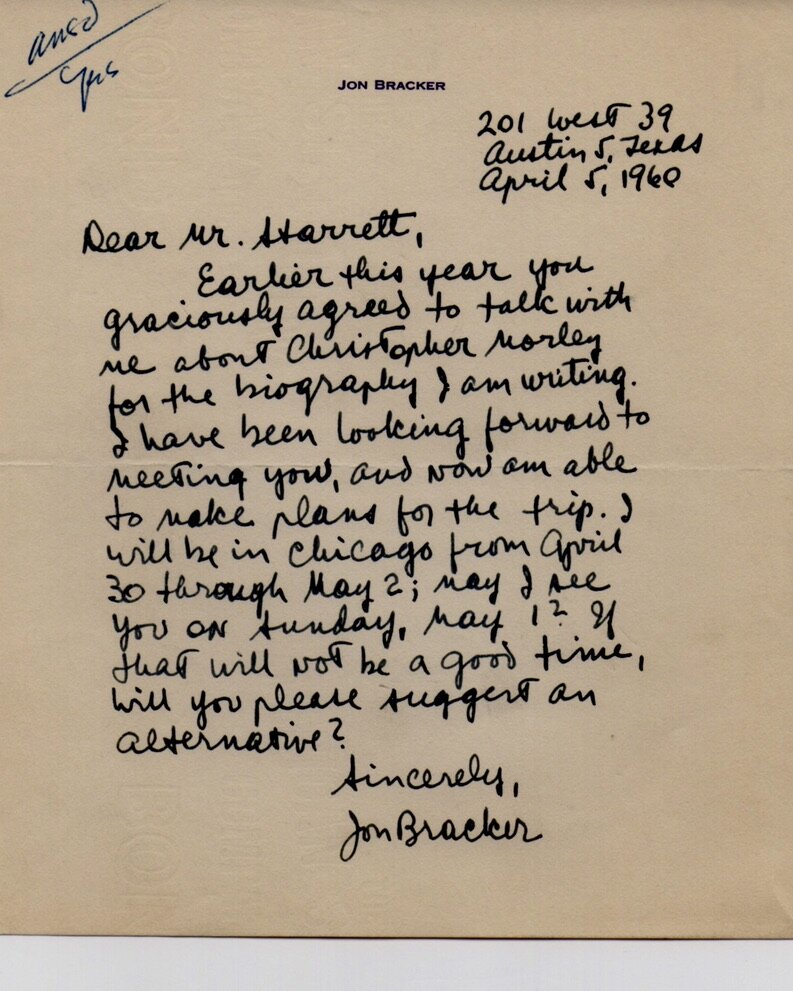 ansd
yes
JON BRACKER
201 West 39
Austin 5, Texas
April 5, 1960
Dear Mr. Starrett,
Earlier this year you
graciously agreed to talk with
me about Christopher Morley
for the biography I am writing.
I have been looking forward to
meeting you, and now am able
to make plans for the trip. I
will be in Chicago from April
30 through May 2; may I see
you on Sunday, May 1? If
that will not be a good time,
will you please suggest an
alternative?
Sincerely,
Jon Bracker